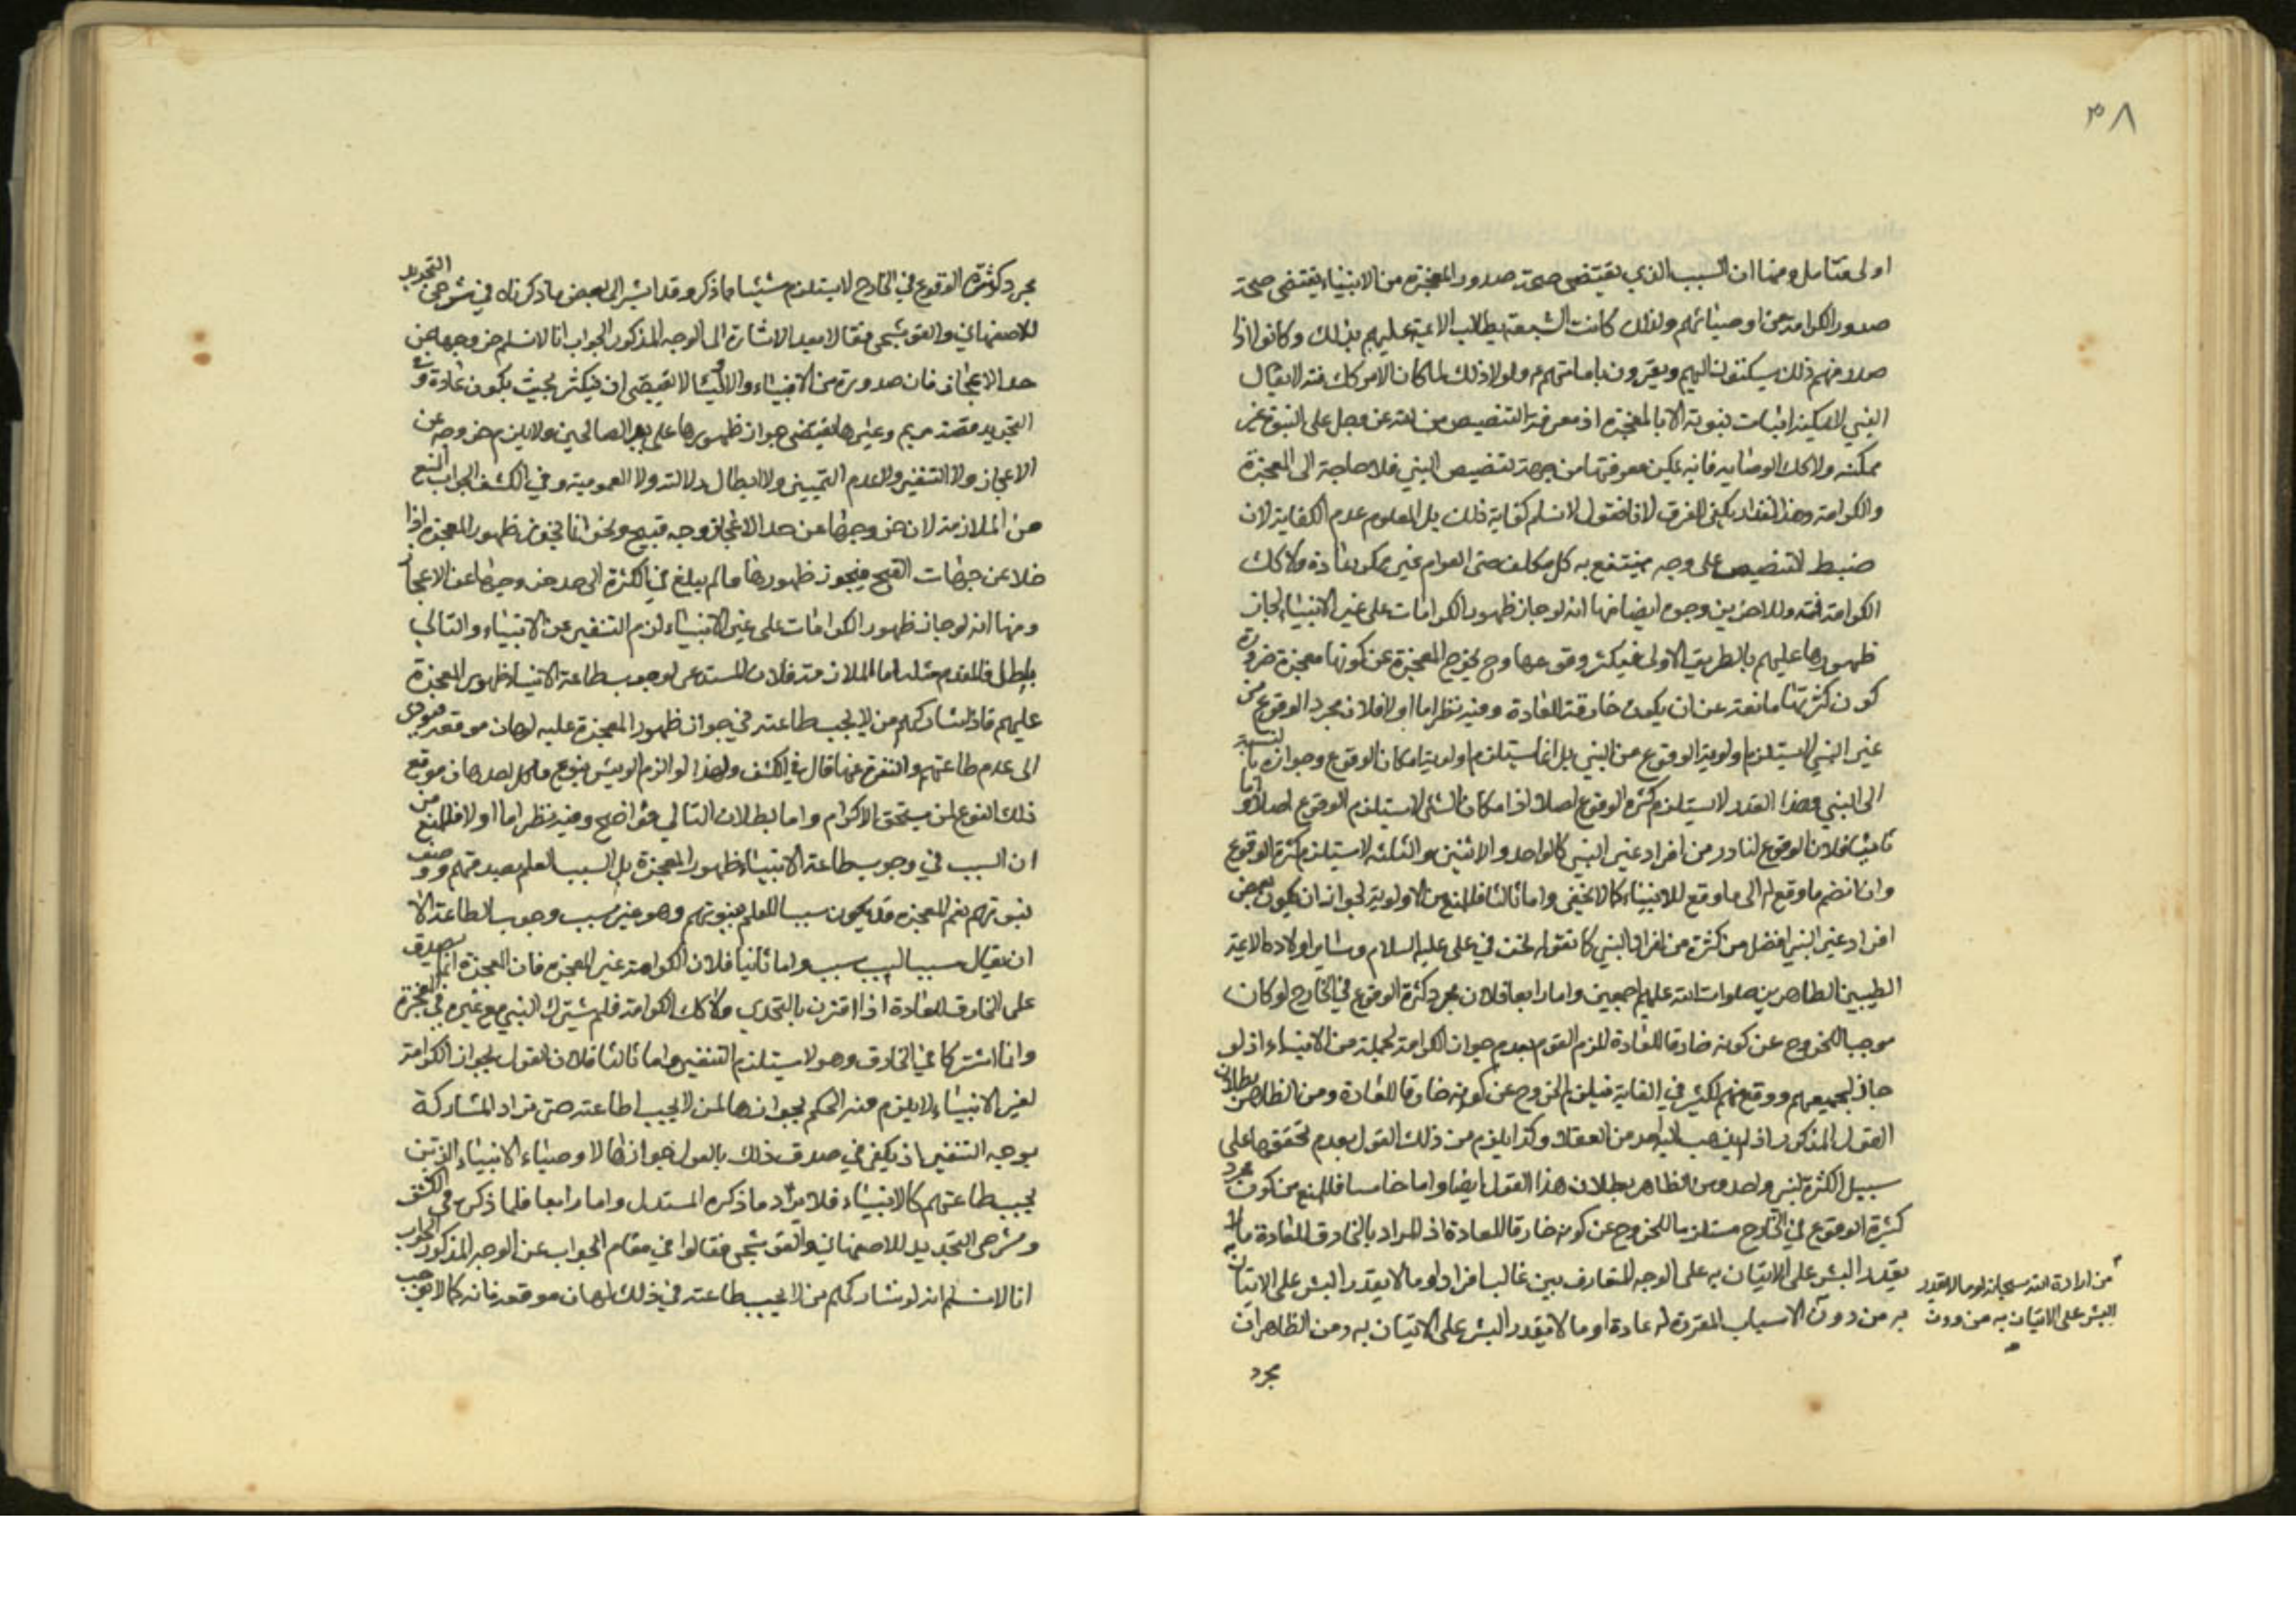 ٣٨
اولى فتامل ومنها ان السبب الذي يقتضى صحة صدور المعجزة من الانبياء يقتضى صحة
صدور الكرامة من اوصيائهم ولذلك كانت الشيعة يطالب الائمة عليهم بذلك وكانوا اذا
صدر منهم ذلك يسكنون اليهم ويقرون بامامتهم ولولا ذلك لما كان الامر كك فته لا يقال
النبي لا يمكن اثبات نبوته الا بالمعجزة اذ معرفة التنصيص من الله عز وجل على النبوة غير
ممكنة ولا كك الوصاية فانه يمكن معرفتها من جهة تنصيص النبي فلا حاجة الى المعجزة
والكرامة وهذا القدر يكفي للفرق لانا نقول لا نسلم كفاية ذلك بل المعلوم عدم الكفاية لان
ضبط التنصيص على وجه ينتفع به كل مكلف حتى العوام غير ممكن عادة ولا كك
الكرامة فته وللاخرين وجوه ايضا منها انه لو جاز ظهور الكرامات على غير الانبياء لجاز
ظهورها عليهم بالطريق الاولى فيكثر وقوعها وح يخرج المعجزة عن كونها معجزة ضرورة
كون كثرتها مانعة عن ان يكون خارقة للعادة وفيه نظر اما اولا فلان مجرد الوقوع من
غير النبي لا يستلزم اولوية الوقوع من النبي بل انما يستلزم اولوية امكان الوقوع وجوازه بالنسبة
الى النبي وهذا القدر لا يستلزم كثرة الوقوع اصلا اذ امكان الشئ لا يستلزم الوقوع اصلا واما
ثانيا فلان الوقوع لنادر من افراد غير النبي كالواحد والاثنين والثلثة لا يستلزم كثرة الوقوع
وان انضم ما وقع له الى ما وقع للانبياء كما لا يخفى واما ثالثا فللمنع من الاولوية لجواز ان يكون بعض
افراد غير النبي افضل من كثرة من افراد النبي كما نقوله نحن في علي عليه السلام وساير اولاده الائمة
الطيبين الطاهرين صلوات الله عليهم اجمعين واما رابعا فلان مجرد كثرة الوقوع في الخارج لو كان
موجبا للخروج عن كونه خارقا للعادة للزم القوم بعدم جواز الكرامة لجملة من الانبياء اذ لو
جاز لجميعهم ووقع منهم لكثر في الغاية فيلزم الخروج عن كونه خارقا للعادة ومن الظاهر بطلان
القول المذكور اذ لم يذهب اليه احد من العقلاء وكذا يلزم من ذلك القول بعدم تحققها على
سبيل الكثرة لنبي واحد ومن الظاهر بطلان هذا القول ايضا واما خامسا فللمنع من كون مجرد
كثرة الوقوع في الخارج مستلزما للخروج عن كونه خارقا للعادة اذ المراد بالخارق للعادة ما لا
يقدر البشر على الاتيان به على الوجه المتعارف بين غالب افراده او ما لا يقدر البشر على الاتيان
به من دون الاسباب المقررة له عادة او ما لا يقدر البشر على الاتيان به ومن الظاهر ان
من ارادة الله سبحانه او ما لا يقدر
البشر على الاتيان به من دون
مجرد
مجرد كثرة الوقوع في الخارج لا يستلزم شيئا مما ذكر وقد اشير الى بعض ما ذكرناه في شرحى التجريد
للاصفهاني والقوشجى فقالا بعد الاشارة الى الوجه المذكور الجواب انا لا نسلم خروجها عن
حد الاعجاز فان صدوره من الانبياء والاولياء لا يقتضى ان يكثر بحيث يكون عادة وفي
التجريد وقصة مريم وغيرها يقتضى جواز ظهورها على الصالحين ولا يلزم خروجه عن
الاعجاز ولا التنفير ولا عدم التميز ولا ابطال دلالته ولا العمومية وفي الكشف الجواب المنع
من الملازمة لان خروجها عن حد الاعجاز وجه قبيح ونحن انما نجوز ظهور المعجزة اذا
خلا عن جهات القبح فيجوز ظهورها ما لم يبلغ في الكثرة الى حد خروجها عن الاعجاز
ومنها انه لو جاز ظهور الكرامات على غير الانبياء لزم التنفير عن الانبياء والتالي
باطل فالمقدم مثله اما الملازمة فلان المستدعى لوجوب طاعة الانبياء ظهور المعجزة
عليهم فاذا شاركهم من لا يجب طاعته في جواز ظهور المعجزة عليه لهان موقعه فيؤدى
الى عدم طاعتهم والنفرة عنها قال في الكشف ولهذا لو اكرم الرييس بنوع ما كل احد هان موقع
ذلك النوع لمن يستحق الاكرام واما بطلان التالي فواضح وفيه نظر اما اولا فللمنع من
ان السبب في وجوب طاعة الانبياء ظهور المعجزة بل السبب العلم بصدقهم ووصف
نبوتهم نعم المعجزة قد يكون سببا للعلم بنبوتهم وهو غير سبب وجوب الطاعة الا
ان يقال سبب السبب سبب واما ثانيا فلان الكرامة غير المعجزة فان المعجزة انما يصدق
على الخارق للعادة اذا اقترن بالتحدي ولا كك الكرامة فلم يشترك النبي مع غيره في المعجزة
وانما اشتركا في الخارق وهو لا يستلزم التنفير واما ثالثا فلان القول بجواز الكرامة
لغير الانبياء لا يلزم منه الحكم بجوازها لمن لا يجب اطاعته حتى يراد المشاركة
يوجب التنفير اذ يكفي في صدق ذلك بالقول بجوازها لاوصياء الانبياء الذين
يجب طاعتهم كالانبياء فلا يراد ما ذكره المستدل واما رابعا فلما ذكره في الكشف
وشرحى التجريد للاصفهاني والقوشجى فقالوا في مقام الجواب عن الوجه المذكور الجواب
انا لا نسلم انه لو شاركهم من لا يجب طاعته في ذلك لهان موقعه فانه كما لا